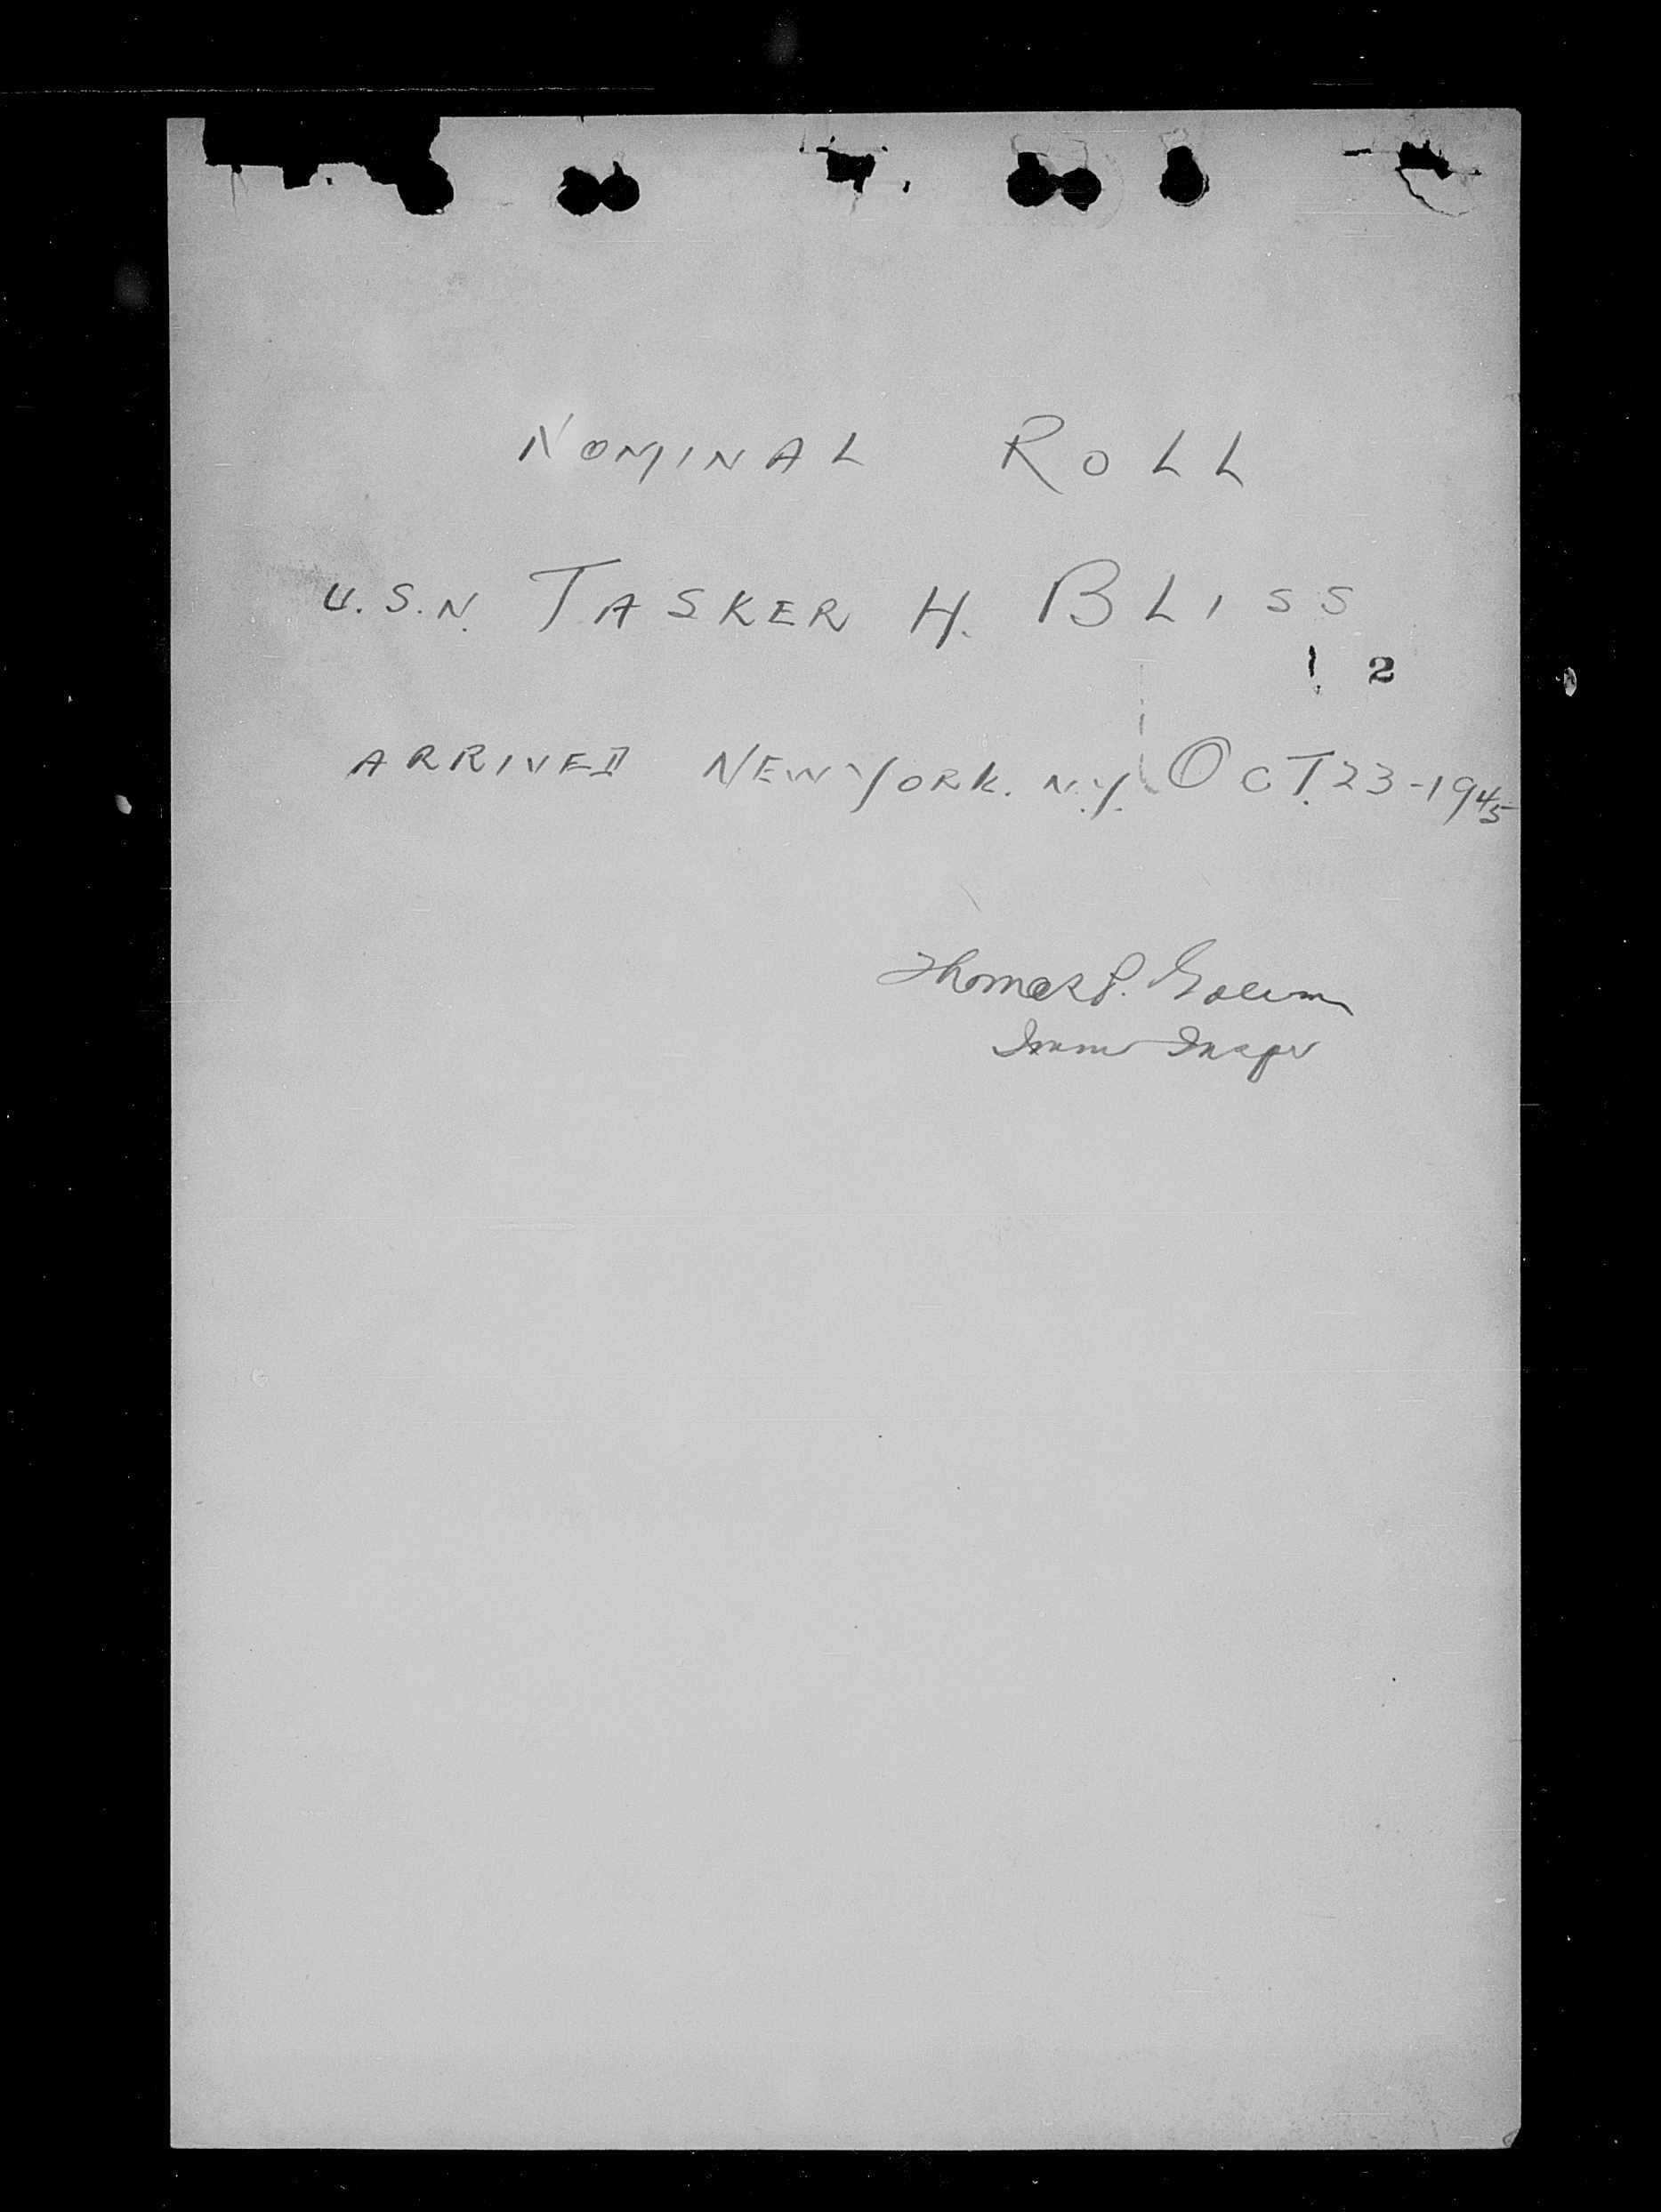 NOMINAL ROLL
U.S.N. TASKER H. BLISS
2
ARRIVED NEW YORK. N.Y. OCT. 23-1945
Thomas P.
Imm Inspr